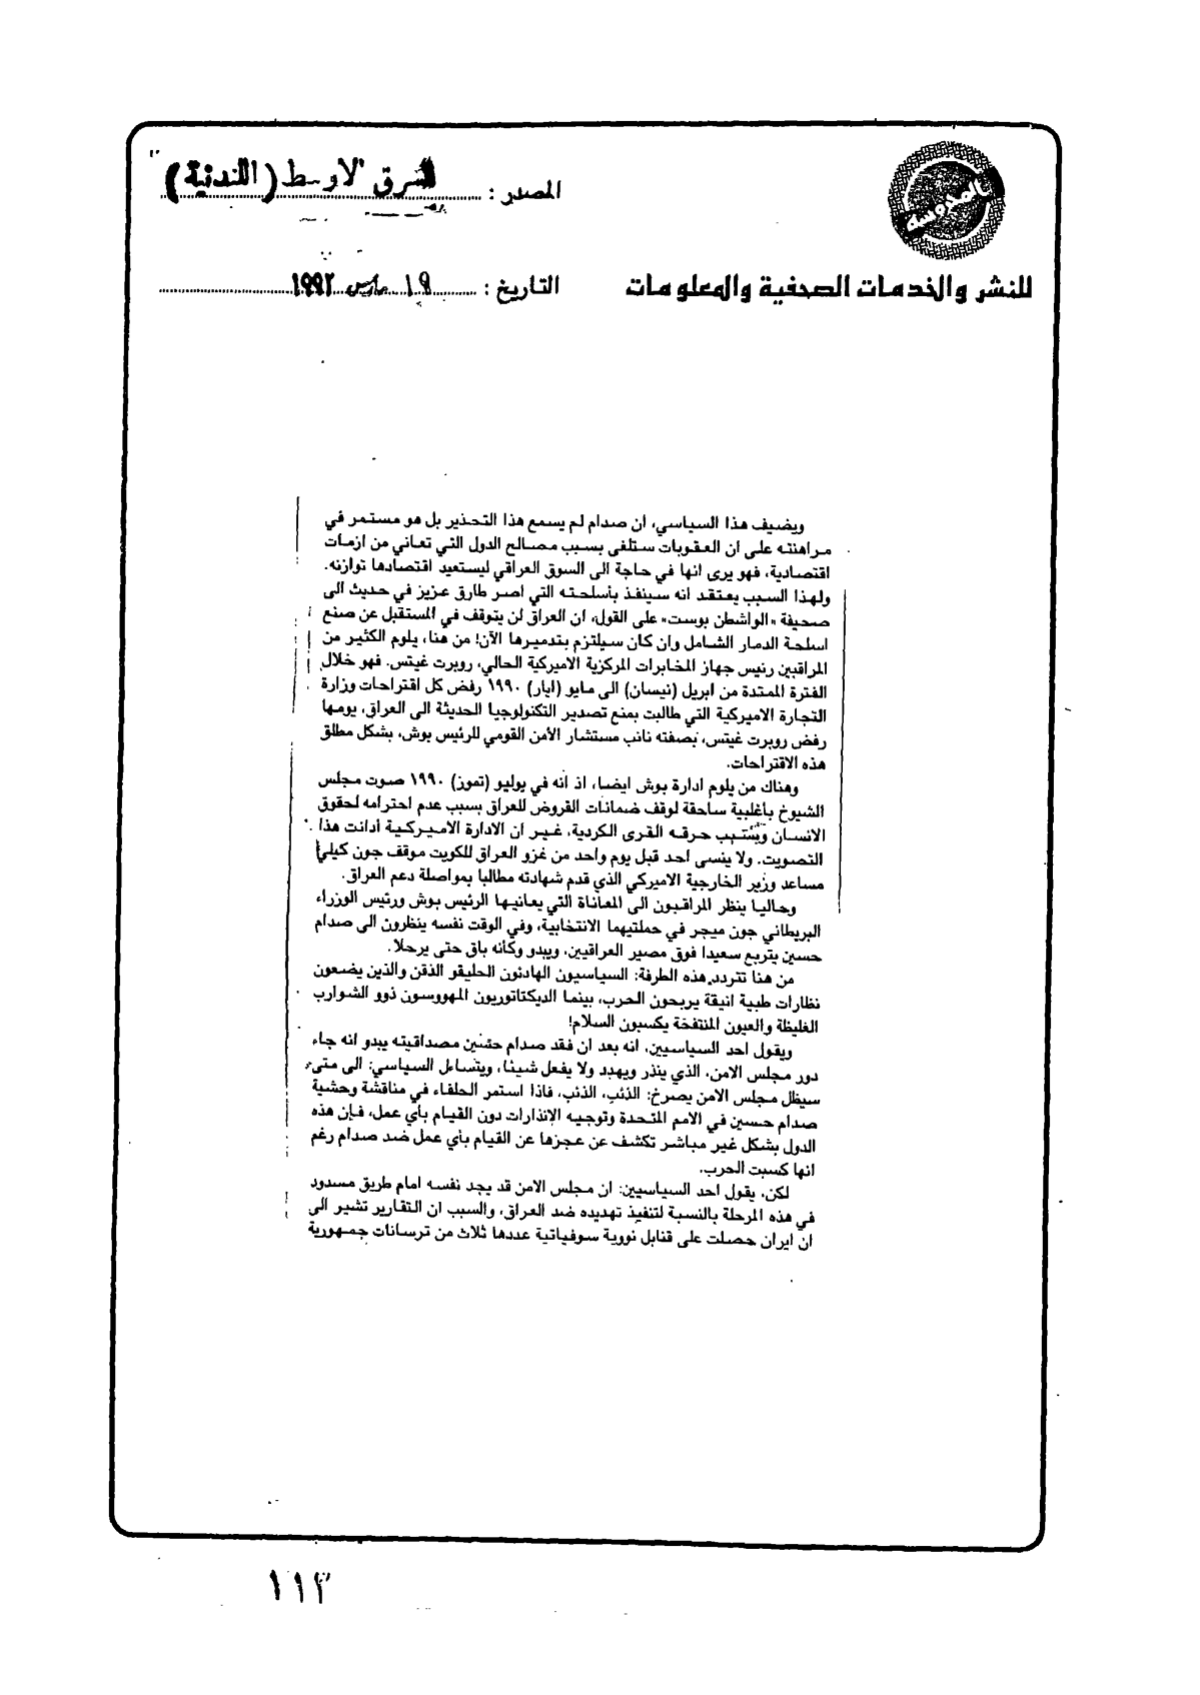 المصدر : الشرق الاوسط (اللندنية)
للنشر والخدمات الصحفية والمعلومات
التاريخ : ١٩ مارس ١٩٩٢
ويضيف هذا السياسي، ان صدام لم يسمع هذا التحذير بل هو مستمر في
مراهنته على ان العقوبات ستلغى بسبب مصالح الدول التي تعاني من ازمات
اقتصادية، فهو يرى انها في حاجة الى السوق العراقي ليستعيد اقتصادها توازنه.
ولهذا السبب يعتقد انه سينفذ بأسلحته التي اصر طارق عزيز في حديث الى
صحيفة «الواشطن بوست» على القول، ان العراق لن يتوقف في المستقبل عن صنع
اسلحة الدمار الشامل وان كان سيلتزم بتدميرها الآن! من هنا، يلوم الكثير من
المراقبين رئيس جهاز المخابرات المركزية الاميركية الحالي، روبرت غيتس. فهو خلال
الفترة الممتدة من ابريل (نيسان) الى مايو (ايار) ١٩٩٠ رفض كل اقتراحات وزارة
التجارة الاميركية التي طالبت بمنع تصدير التكنولوجيا الحديثة الى العراق، يومها
رفض روبرت غيتس، بصفته نائب مستشار الأمن القومي للرئيس بوش، بشكل مطلق
هذه الاقتراحات.
وهناك من يلوم ادارة بوش ايضا، اذ انه في يوليو (تموز) ١٩٩٠ صوت مجلس
الشيوخ بأغلبية ساحقة لوقف ضمانات القروض للعراق بسبب عدم احترامه لحقوق
الانسان وبسبب حرقه القرى الكردية، غير ان الادارة الاميركية أدانت هذا
التصويت. ولا ينسى احد قبل يوم واحد من غزو العراق للكويت موقف جون كيلي
مساعد وزير الخارجية الاميركي الذي قدم شهادته مطالبا بمواصلة دعم العراق.
وحاليا ينظر المراقبون الى المعاناة التي يعانيها الرئيس بوش ورئيس الوزراء
البريطاني جون ميجر في حملتيهما الانتخابية، وفي الوقت نفسه ينظرون الى صدام
حسين يتربع سعيدا فوق مصير العراقيين، ويبدو وكأنه باق حتى يرحلا.
من هنا تتردد هذه الطرفة: السياسيون الهادئون الحليقو الذقن والذين يضعون
نظارات طبية انيقة يربحون الحرب، بينما الديكتاتوريون المهووسون ذوو الشوارب
الغليظة والعيون المنتفخة يكسبون السلام!
ويقول احد السياسيين، انه بعد ان فقد صدام حسين مصداقيته يبدو انه جاء
دور مجلس الامن، الذي ينذر ويهدد ولا يفعل شيئا، ويتساءل السياسي: الى متى
سيظل مجلس الامن يصرخ: الذئب، الذئب، فاذا استمر الحلفاء في مناقشة وحشية
صدام حسين في الامم المتحدة وتوجيه الإنذارات دون القيام بأي عمل، فإن هذه
الدول بشكل غير مباشر تكشف عن عجزها عن القيام بأي عمل ضد صدام رغم
انها كسبت الحرب.
لكن، يقول احد السياسيين: ان مجلس الامن قد يجد نفسه امام طريق مسدود
في هذه المرحلة بالنسبة لتنفيذ تهديده ضد العراق، والسبب ان التقارير تشير الى
ان ايران حصلت على قنابل نووية سوفياتية عددها ثلاث من ترسانات جمهورية
١١٣